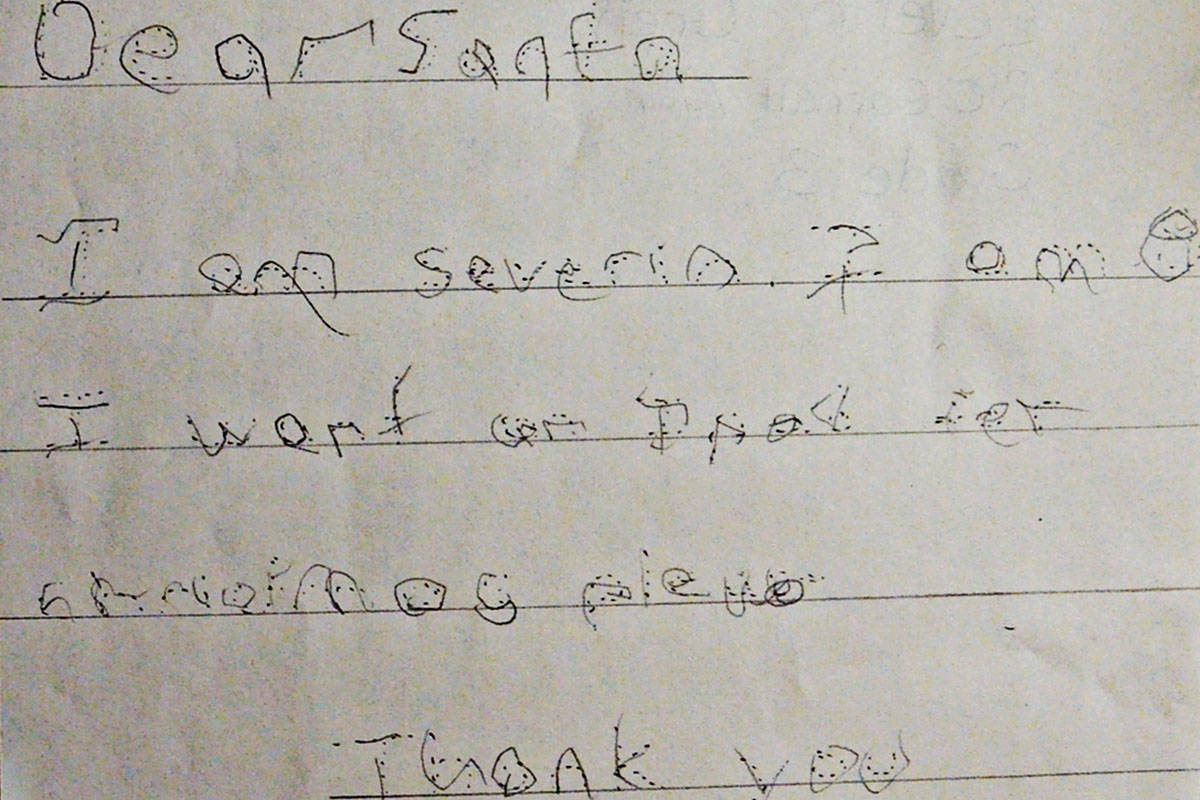 Dear Santa
I am severin. I am 8
I want an Ipad for
christmas please
Thank you